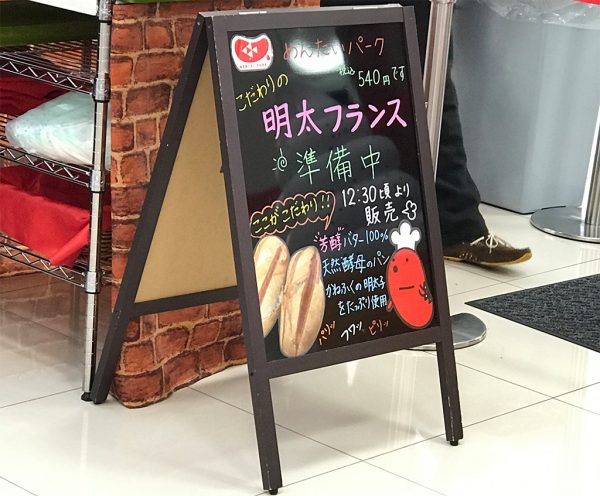 めんたいパーク
税込 540円です
こだわりの
明太フランス
準備中
12:30頃より
販売
ここがこだわり!!
"芳醇"バター100%
天然酵母のパン
かねふくの明太子
をたっぷり使用
パリッ フワッ ピリッ